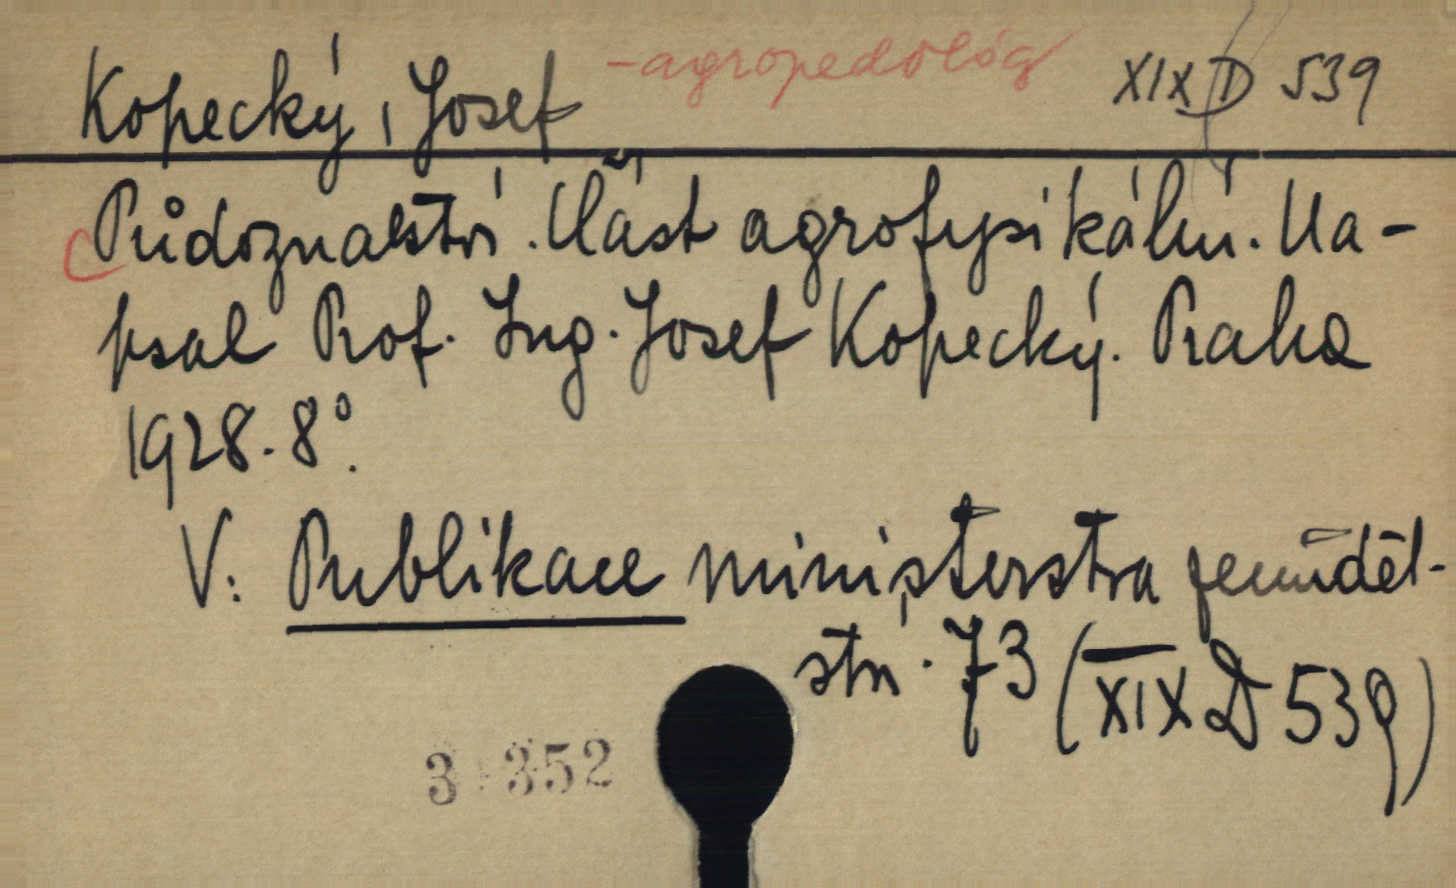 Kopecký, Josef - agropedológ XIX D 539
Půdoznalství. Část agrofysikální. Na-
psal Prof. Ing. Josef Kopecký. Praha
1928. 8°.
V: Publikace ministerstva zeměděl-
ství. 73 (XIX D 539)
3 352